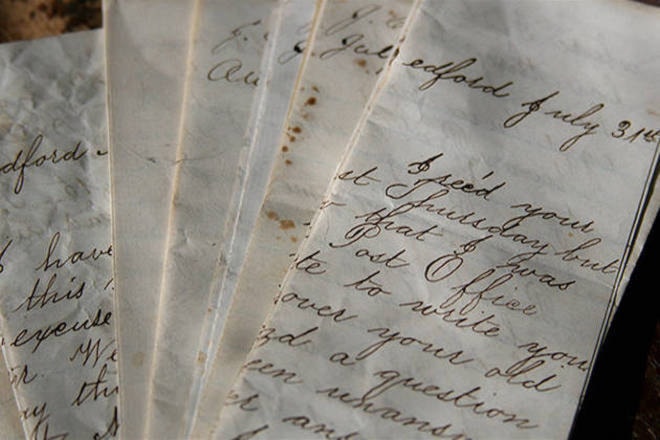 dford
have
this
excuse
r. We
ay th
J.
Au
J. Jul
edford July 31st
I rec'd your
st Thursday but
that I was
Post Office
te to write you
over your old
nd a question
een unans
er an